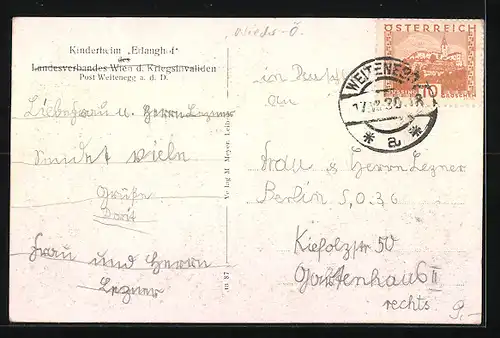 Wieder-Ö.
Kinderheim „Erlanghof"
des
Landesverbandes Wien d. Kriegsinvaliden
Post Weitenegg a. d. D.
Liebe Frau u. Herrn Lezner
viele
Grüße
Dorit
Frau und Herrn
Lezner
Verlag M. Meyer,
m 87
ÖSTERREICH
WEITENEGG
17.VII.30
* a *
in
an
Frau & Herrn Lezner
Berlin S.O.36
Kiefolzstr 50
Gartenhaus II
rechts.
9.-